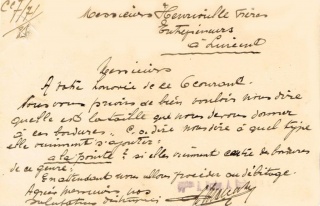 Messieurs Henrioulle Frères
Entrepreneurs
à
Messieurs
A votre honorée de ce 6 courant.
Nous vous prions de bien vouloir nous dire
quelle est la taille que nous devons donner
à ces bordures. C. à dire nous dire à quel type
elle viennent s'ajouter:
à la pointe? si elles viennent contre des bordures
de ce genre.
En attendant nous allons procéder au débitage.
Agréez messieurs, nos
salutations